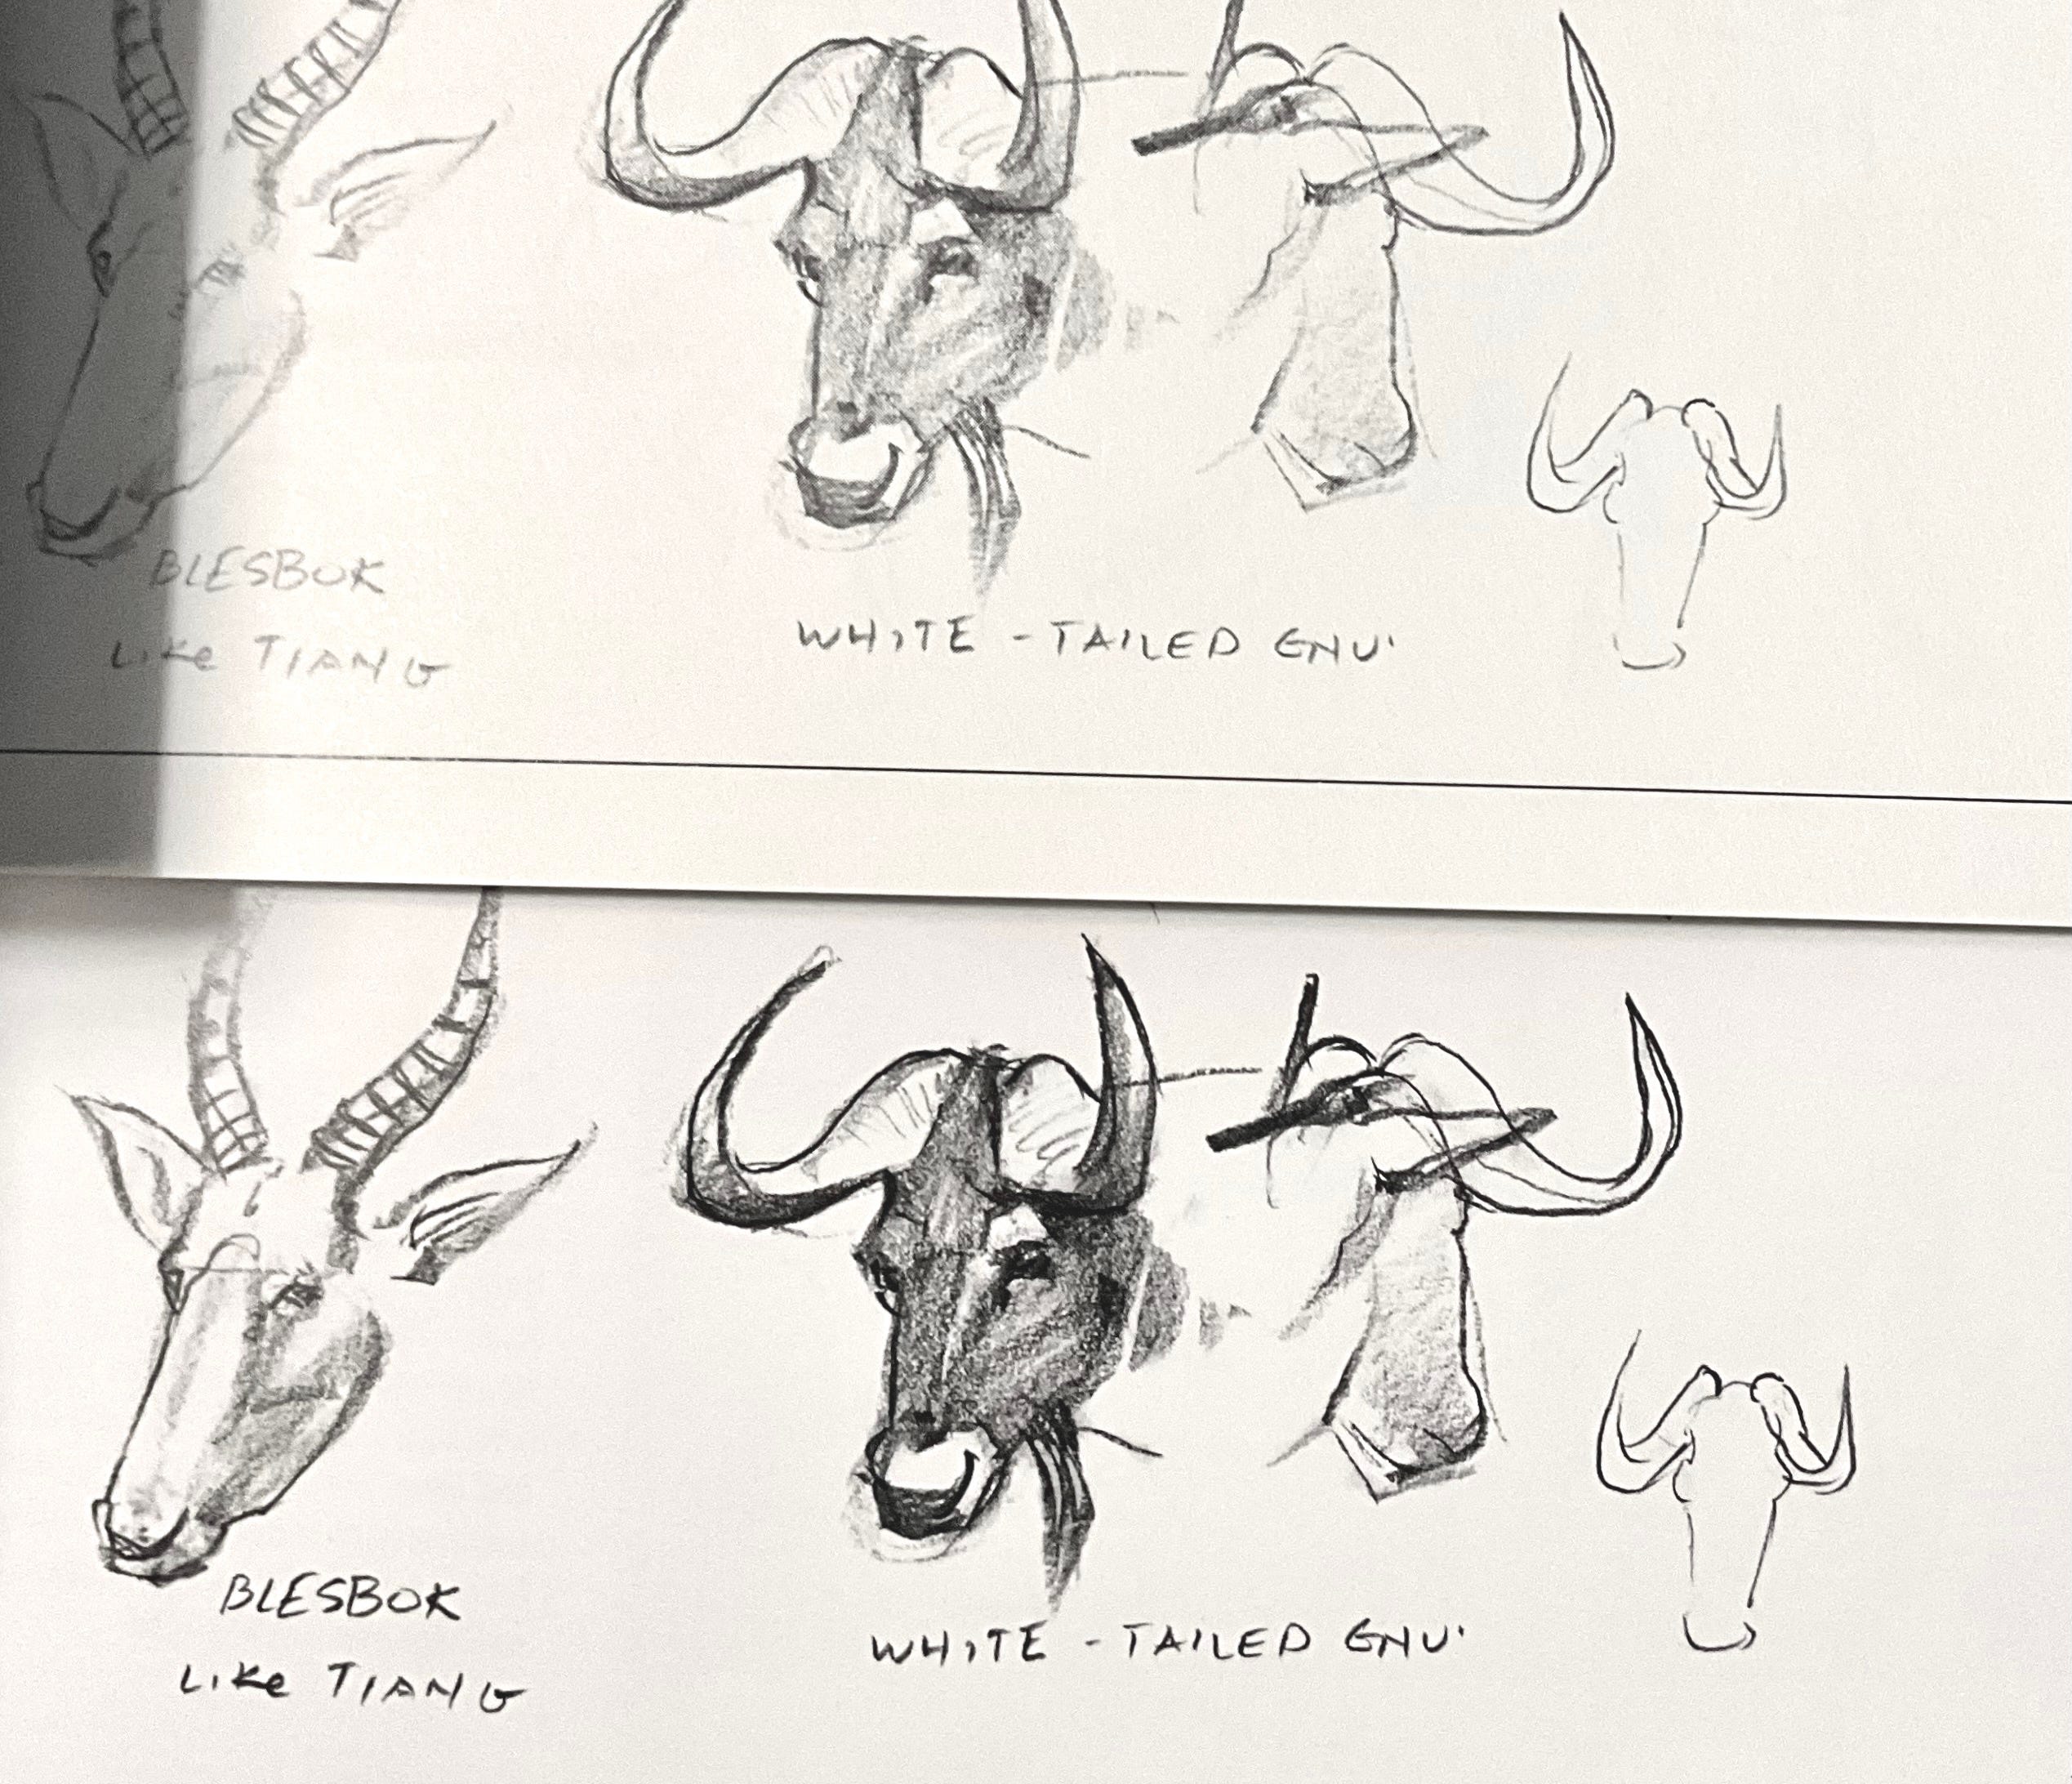 BLESBOK
LIKe TIANG
WHITE - TAILED GNU'
BLESBOK
LIKe TIANG
WHITE - TAILED GNU'